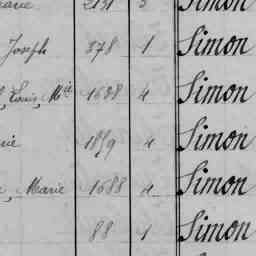 2131 3 Simon
Joseph 378 1 Simon
Louis, Mie 1638 4 Simon
1859 4 Simon
Marie 1688 4 Simon
88 1 Simon